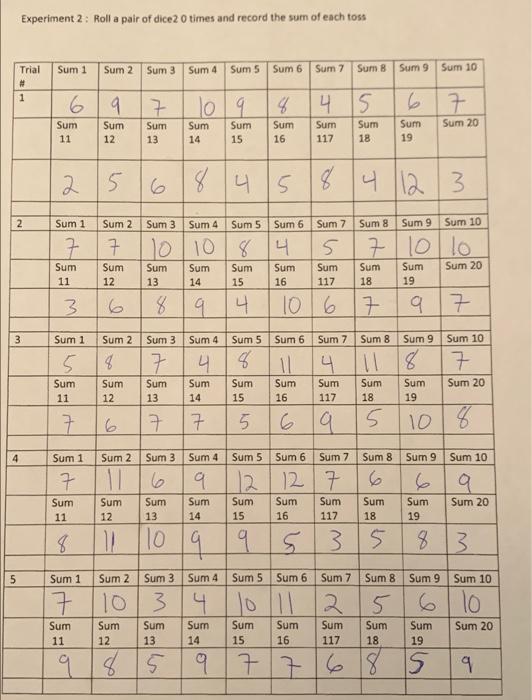 Experiment 2 : Roll a pair of dice2 0 times and record the sum of each toss
Trial # Sum 1 Sum 2 Sum 3 Sum 4 Sum 5 Sum 6 Sum 7 Sum 8 Sum 9 Sum 10
1 6 9 7 10 9 8 4 5 6 7
Sum 11 Sum 12 Sum 13 Sum 14 Sum 15 Sum 16 Sum 117 Sum 18 Sum 19 Sum 20
2 5 6 8 4 5 8 4 12 3
2 Sum 1 Sum 2 Sum 3 Sum 4 Sum 5 Sum 6 Sum 7 Sum 8 Sum 9 Sum 10
7 7 10 10 8 4 5 7 10 10
Sum 11 Sum 12 Sum 13 Sum 14 Sum 15 Sum 16 Sum 117 Sum 18 Sum 19 Sum 20
3 6 8 9 4 10 6 7 9 7
3 Sum 1 Sum 2 Sum 3 Sum 4 Sum 5 Sum 6 Sum 7 Sum 8 Sum 9 Sum 10
5 8 7 4 8 11 4 11 8 7
Sum 11 Sum 12 Sum 13 Sum 14 Sum 15 Sum 16 Sum 117 Sum 18 Sum 19 Sum 20
7 6 7 7 5 6 9 5 10 8
4 Sum 1 Sum 2 Sum 3 Sum 4 Sum 5 Sum 6 Sum 7 Sum 8 Sum 9 Sum 10
7 11 6 9 12 12 7 6 6 9
Sum 11 Sum 12 Sum 13 Sum 14 Sum 15 Sum 16 Sum 117 Sum 18 Sum 19 Sum 20
8 11 10 9 9 5 3 5 8 3
5 Sum 1 Sum 2 Sum 3 Sum 4 Sum 5 Sum 6 Sum 7 Sum 8 Sum 9 Sum 10
7 10 3 4 10 11 2 5 6 10
Sum 11 Sum 12 Sum 13 Sum 14 Sum 15 Sum 16 Sum 117 Sum 18 Sum 19 Sum 20
9 8 5 9 7 7 6 8 5 9